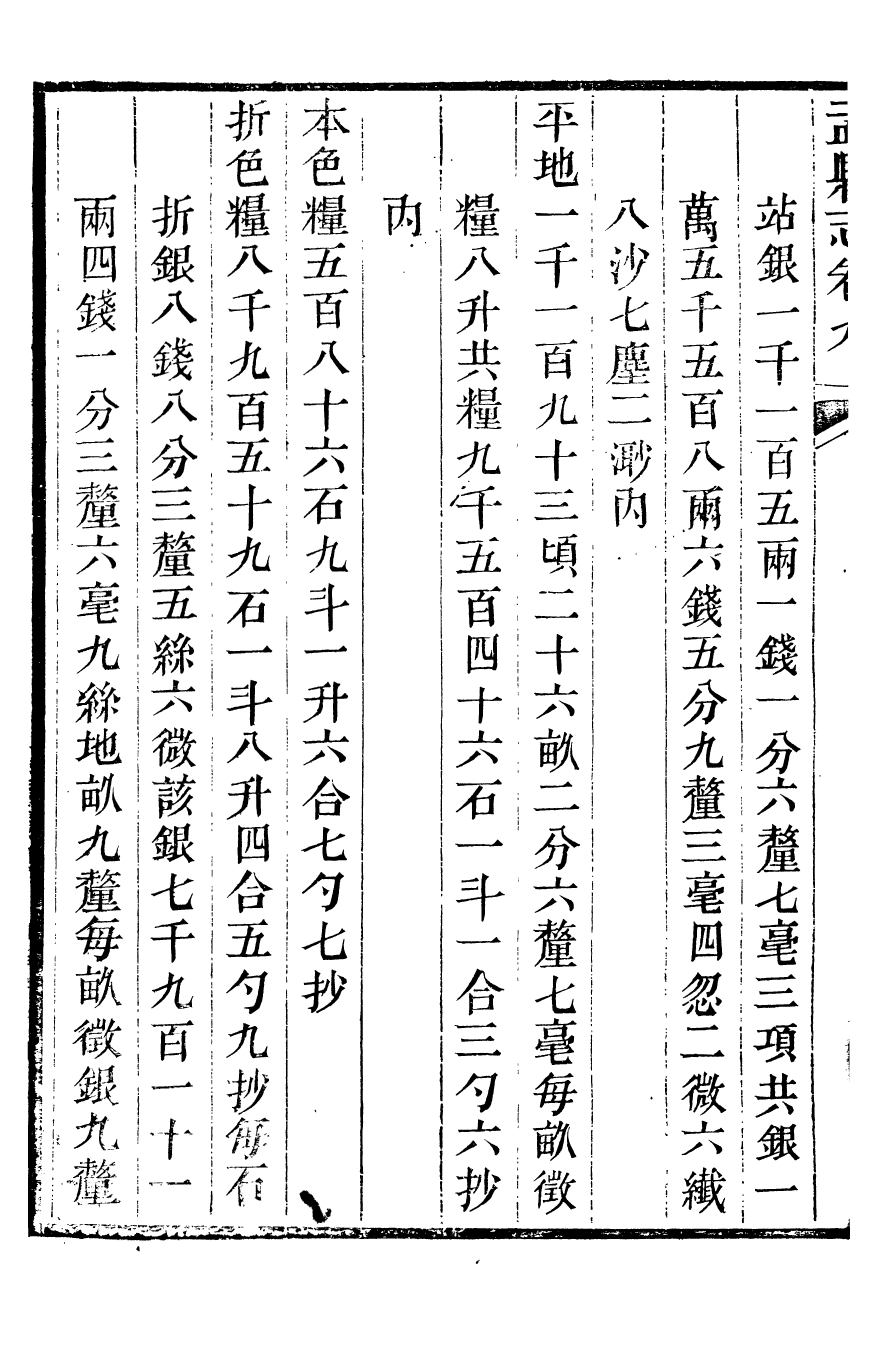 盂縣志卷九
站銀一千一百五兩一錢一分六釐七毫三項共銀一
萬五千五百八兩六錢五分九釐三毫四忽二微六纎
八沙七塵二渺内
平地一千一百九十三頃二十六畝二分六釐七毫每畝徵
糧八升共糧九千五百四十六石一斗一合三勺六抄
内
本色糧五百八十六石九斗一升六合七勺七抄
折色糧八千九百五十九石一斗八升四合五勺九抄每石
折銀八錢八分三釐五絲六微該銀七千九百一十一
兩四錢一分三釐六毫九絲地畝九釐每畝徵銀九釐